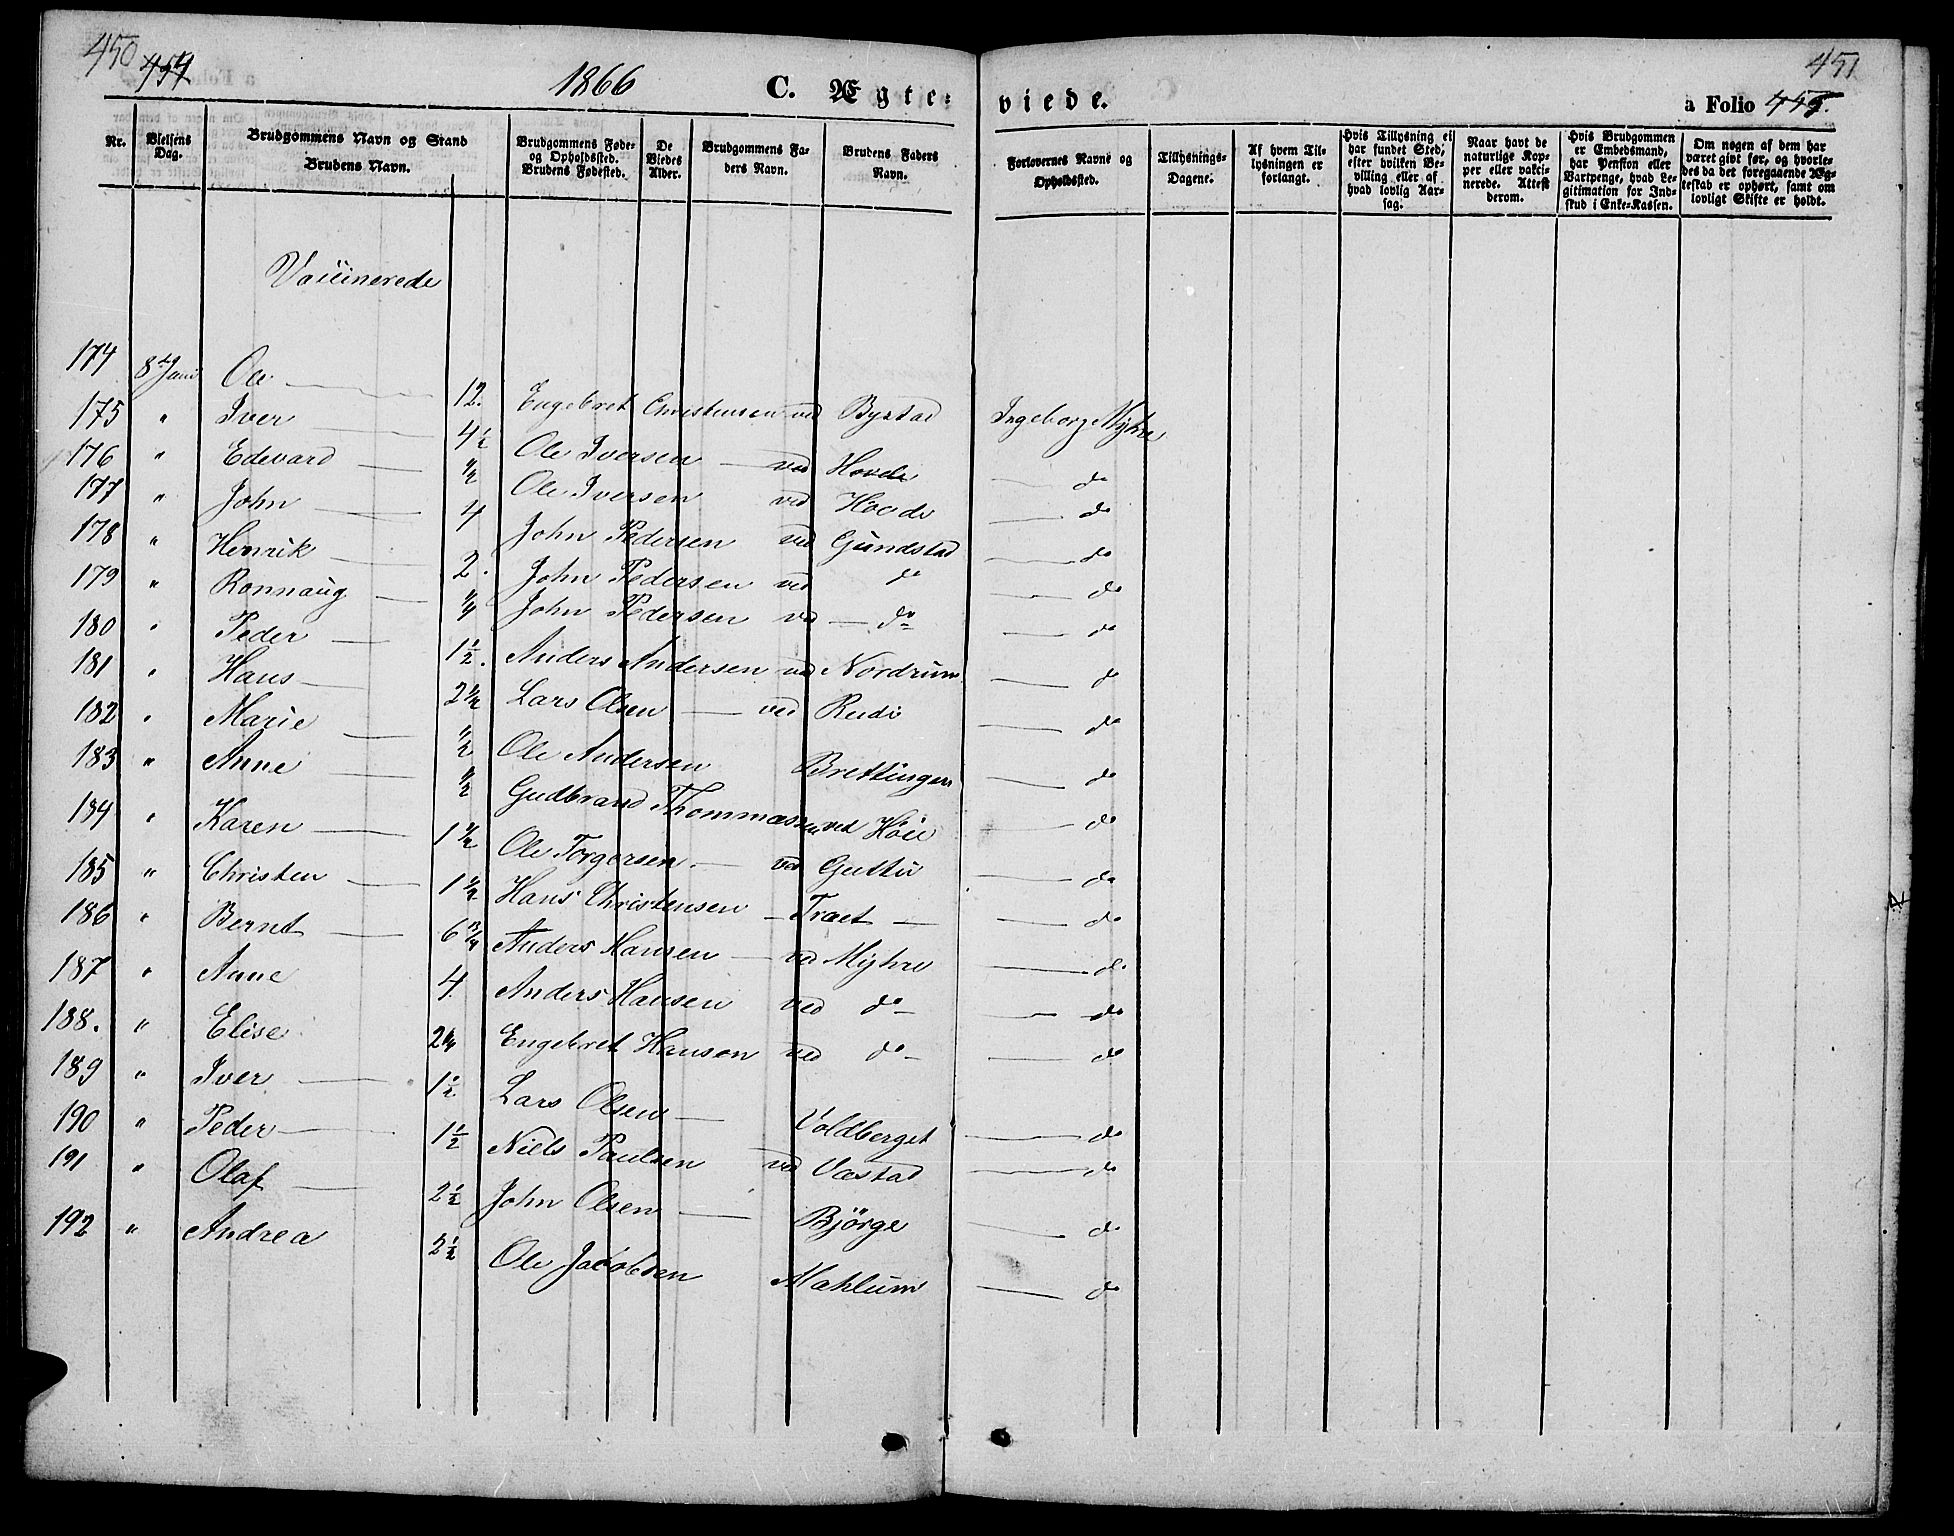 450 454
1866
C. Ægte-
viede.
451
a Folio 455.
Nr.
Vielsens Dag.
Brudgommens Navn og Stand
Brudens Navn.
Brudgommens Føde- og Opholdssted. Brudens Fødested.
De Viedes Alder.
Brudgommens Faders Navn.
Brudens Faders Navn.
Forlovernes Navne og Opholdssted.
Tillysnings-Dagene.
Af hvem Tillysningen er forlangt.
Hvis Tillysning ei har fundet Sted, efter hvilken Bevilling eller af hvad lovlig Aarsag.
Naar havt de naturlige Kopper eller vaccinerede. Attest derom.
Hvis Brudgommen er Embedsmand, har Pension eller Vartpenge, hvad Legitimation for Indskud i Enke-Kassen.
Om nogen af dem har været gift før, og hvorledes da det foregaaende Ægteskab er ophørt, samt om lovligt Skifte er holdt.
Vaccinerede
174 8de Juni Ole 12. Engebret Christensen ved Bystad Ingeborg Myhre
175 " Iver 4½ Ole Iversen ved Hovde do
176 " Edevard ½ Ole Iversen ved Hovde do
177 " John 4 John Pedersen ved Gundstad do
178 " Henrik 2. John Pedersen ved do do
179 " Ronnaug ¼ John Pedersen ved do do
180 " Peder 1½. Anders Andersen ved Nordrum do
181 " Hans 2½ Lars Olsen ved Rudi do
182 " Marie ½ Ole Andersen Brettingen do
183 " Anne ½ Gudbrand Thommassen ved Höie do
184 " Karen 1½ Ole Torgersen ved Guttu do
185 " Christen 1½ Hans Christensen Traet do
186 " Bernt 6 Anders Hansen ved Myhre do
187 " Anne 4. Anders Hansen ved do do
188. " Elise 2¼ Engebret Hansen ved do do
189 " Iver 1½ Lars Olsen Voldberget do
190 " Peder 1½ Niels Paulsen ved Væstad do
191 " Olaf 2½ John Olsen Björge do
192 " Andrea 2½ Ole Jacobsen Mahlum do